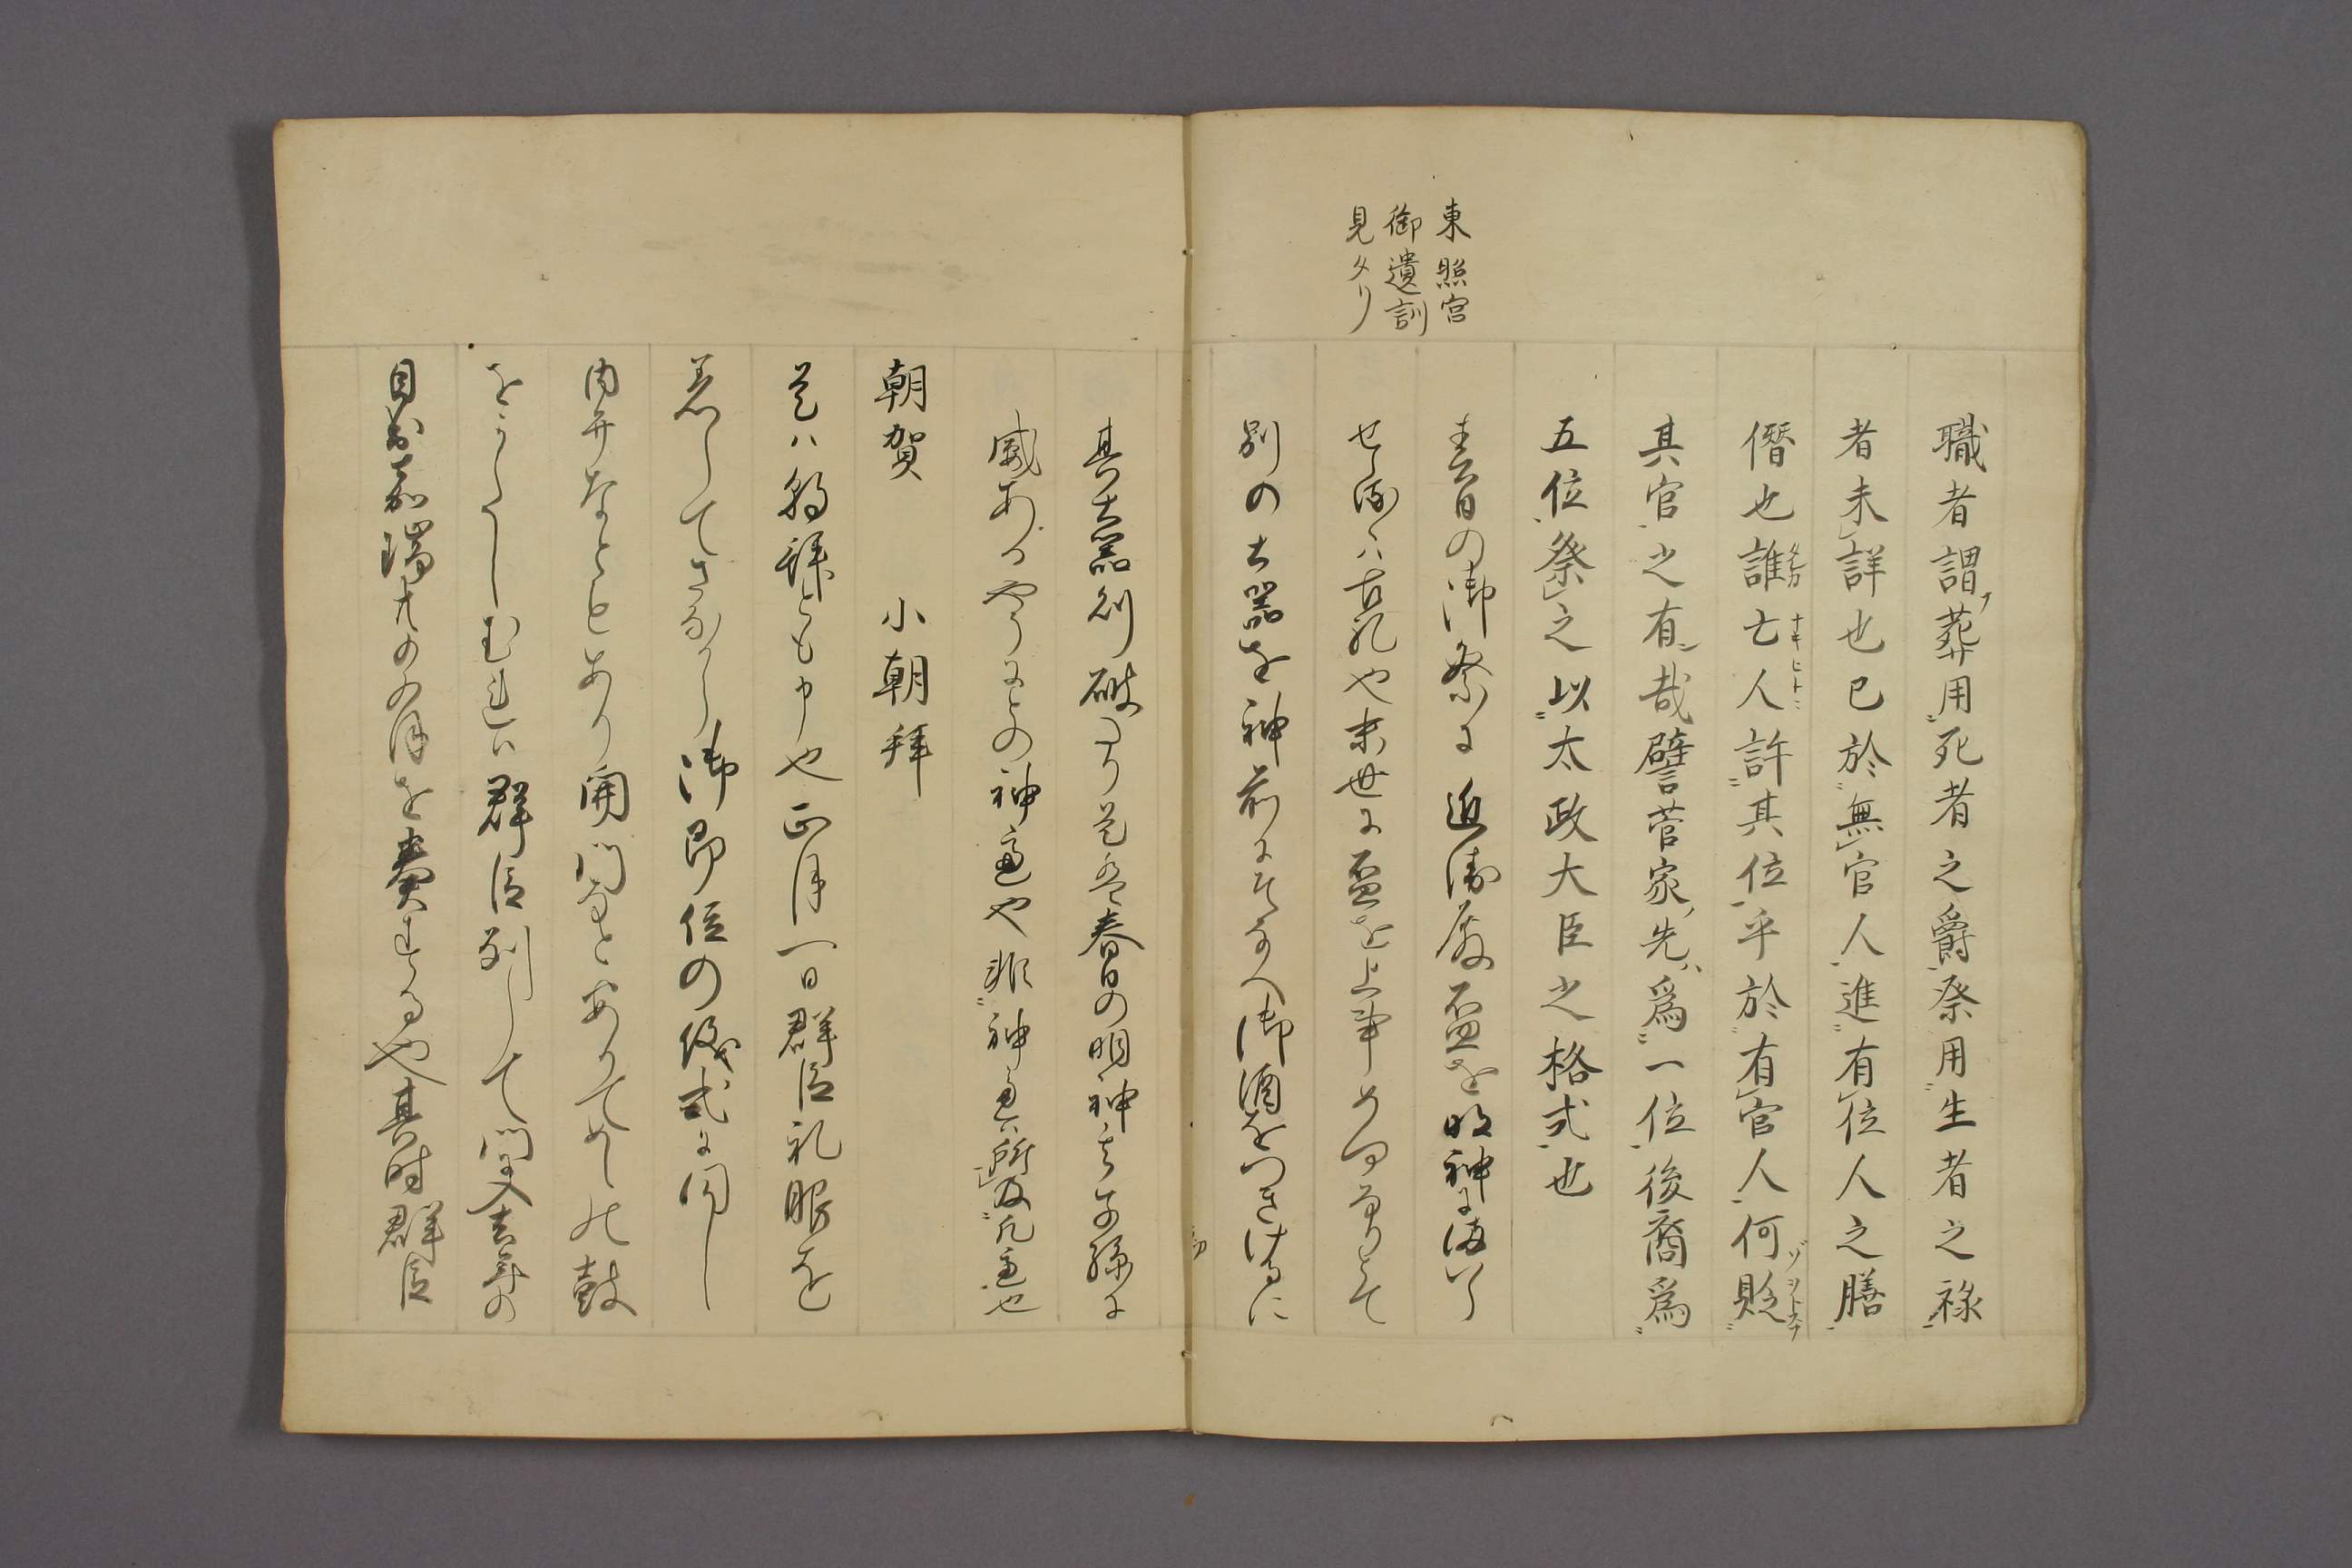 東照宮
御遺訓
見タリ
職者謂葬用死者之爵祭用生者之祿
者未詳也已於無官人進有位人之膳
僭也誰亡人許其位乎於有官人何貶
其官之有哉譬菅家先為一位後裔為
五位祭之以太政大臣之格式也
春日の御祭に近衛殿盃を明神に
せハ古礼や末世に盃を上事
別の土器を神前にそなへ御酒をつきけるに
其土器則破たり是春日の明神其子孫に
威あるやうにとの神慮や非神慮ハ所及凡慮也
朝賀　小朝拜
是ハ朝拝とも申也正月一日群臣礼服を
着してさなから御即位の儀式に同し
内弁なとゝあり開門なとありてめしの鼓
をうたしむれハ群臣列して門に入去年の
目出嘉瑞の月を奏するや其時群臣